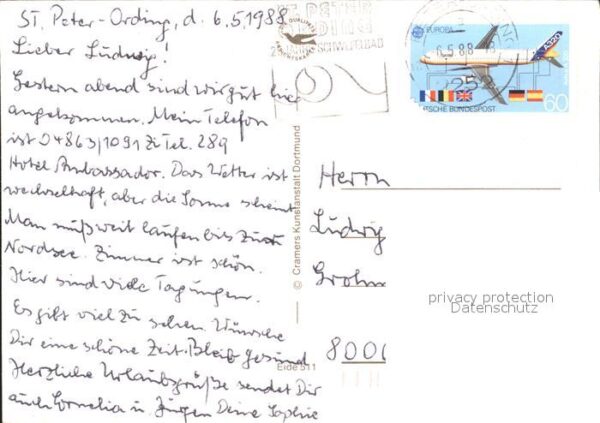 St. Peter-Ording, d. 6.5.1988
Lieber Ludwig!
Gestern abend sind wir gut hier
angekommen. Mein Telefon
ist 04863/1091 Zi Tel. 289
Hotel Ambassador. Das Wetter ist
wechselhaft, aber die Sonne scheint
Man muß weit laufen bis zur
Nordsee. Zimmer ist schön.
Hier sind viele Tagungen.
Es gibt viel zu sehen. Wünsche
Dir eine schöne Zeit. Bleib gesund
Herzliche Urlaubsgrüße sendet Dir
auch Cornelia u. Jürgen Deine Sophie
© Cramers Kunstanstalt Dortmund
Eide 511
ST. PETER
ORDING
SCHWEFELBAD
6.5.88
25
EUROPA
A320
60
DEUTSCHE BUNDESPOST
Herrn
Ludwig
Grohm
8000
privacy protection
Datenschutz